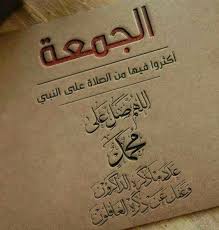 الجمعة
أكثروا فيها من الصلاة على النبي
اللهم صل على
محمد
عدد ما ذكره الذاكرون
وغفل عن ذكره الغافلون